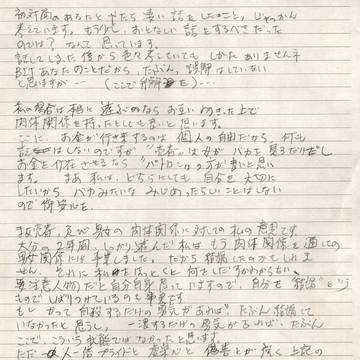 初対面のあなたと やたら 凄い 話を したこと、じゃっかん
考えています。もう少し、おとなしい 話を するべき だった
のでは? なんて 思っています。
話してしまった後から 色々考えていても しかたありません
BIT あなたのことだから、たぶん、誤解はしていない
と思いますが…(ここで)
私の場合は 相手に 遊ぶのなら お互いわりきった上で
肉体関係を持ったとしても 良いと思います。
ここに お金が行き来するのは 個人の自由だから 何も
お金を介在させるなら "パトロン"の方が 良いと思い
ます。まあ 私は、どちらにしても 自分を 大切に
したいから バカみたいな みじめったらしいことはしない
ので 御安心を。
及び 男女の 肉体関係に対しての 私の意見です
大分の2年間、しっかり遊んだ私は もう 肉体関係を通しての
男女関係だけは 卒業しました。だから 結婚したのかもしれま
せん。それに 私は ほっとくと 何をしだすかわからない、
要注意人物だと 自分自身 思っていますので、自分を "結婚" という
もので しばりつけているのも 事実です
もし かって 自殺するだけの 勇気があれば、たぶん 結婚して
いなかったと 思うし、一浪するだけの 勇気があれば、たぶん
ここで、こういう 状態では なかったと 思います。
ただ 人一倍 プライドと 虚栄心と 偽善とが 強く 上記の